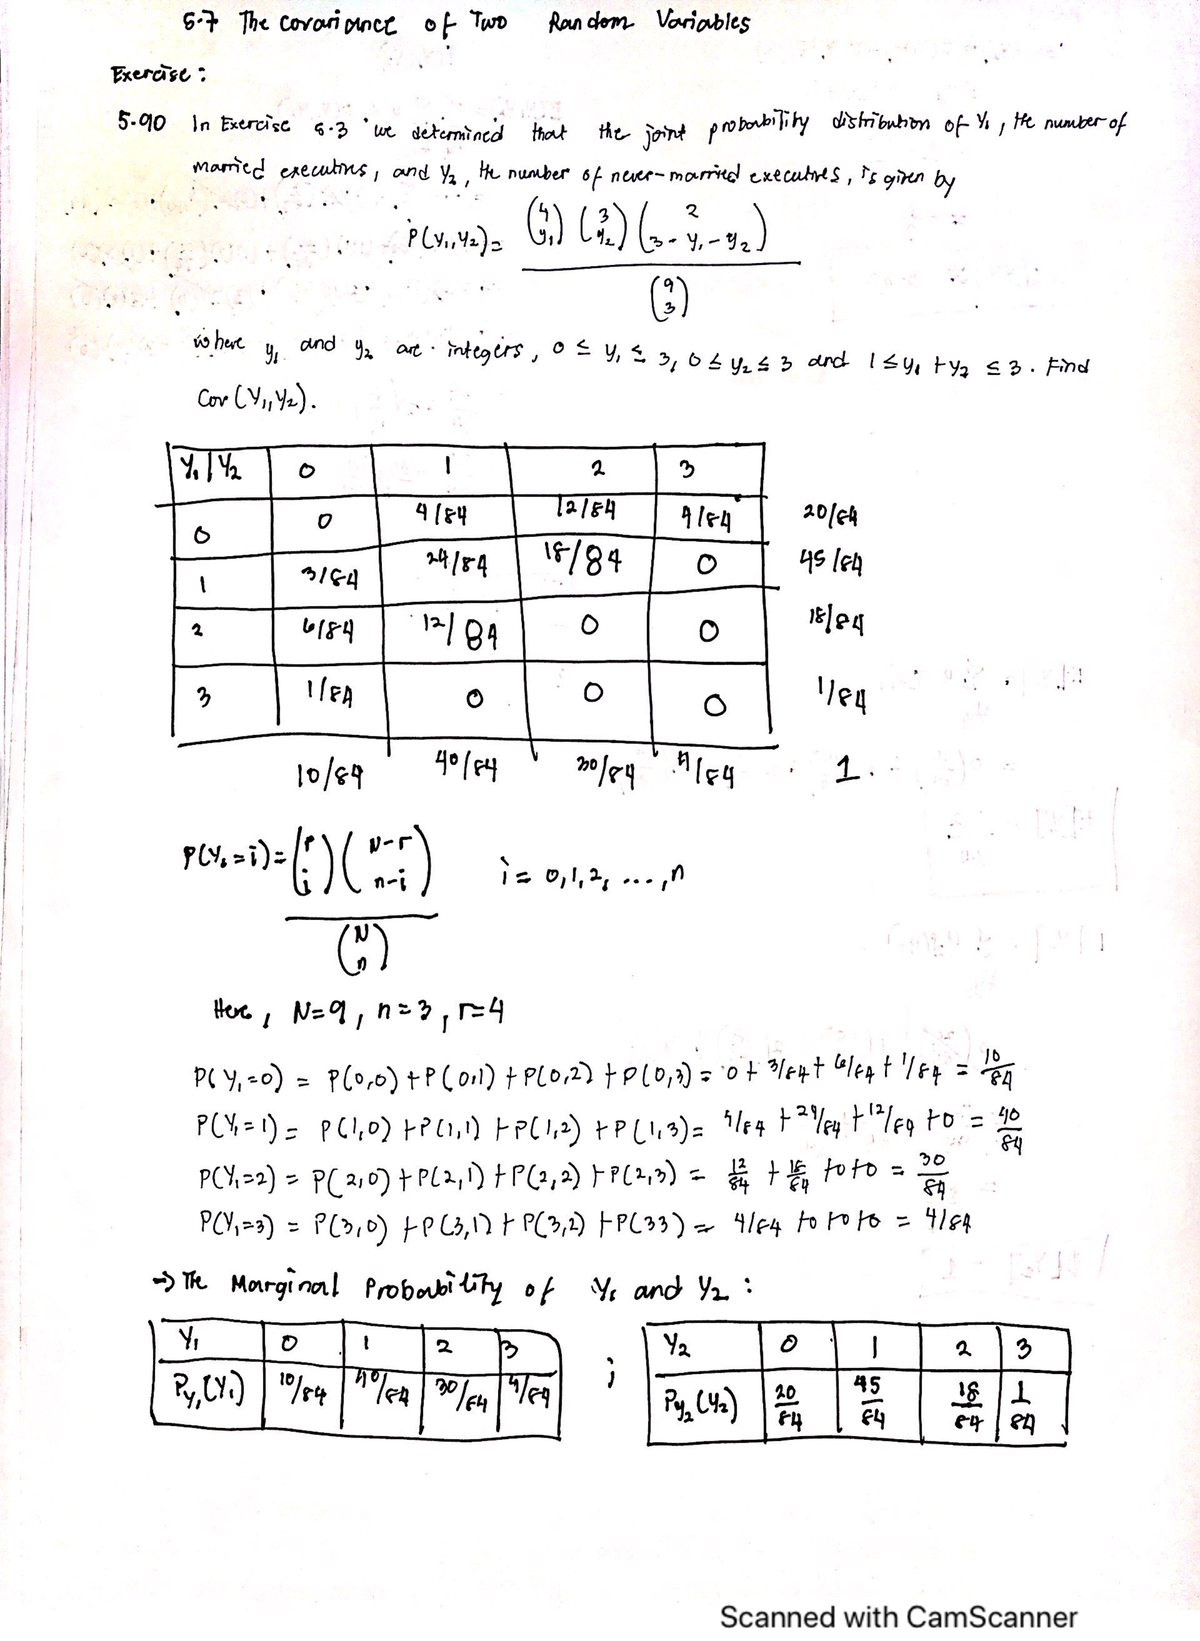 5.7 The Covariance of Two Random Variables
Exercise :
5.90 In Exercise 5.3 we determined that the joint probability distribution of Y₁, the number of
married executives, and Y₂, the number of never-married executives, is given by
P(y₁,y₂) = (4 y₁) (3 y₂) (2 3-y₁-y₂)
(9 3)
where y₁ and y₂ are integers, 0 ≤ y₁ ≤ 3, 0 ≤ y₂ ≤ 3 and 1 ≤ y₁ + y₂ ≤ 3. Find
Cov (Y₁,Y₂).
Y₁|Y₂ 0 1 2 3
0 0 4/84 12/84 4/84 20/84
1 3/84 24/84 18/84 0 45/84
2 6/84 12/84 0 0 18/84
3 1/84 0 0 0 1/84
10/84 40/84 30/84 4/84 1.
P(Y₁=i) = (r i) (N-r n-i) i = 0,1,2, ...,n
(N n)
Here, N=9, n=3, r=4
P(Y₁=0) = P(0,0) + P(0,1) + P(0,2) + P(0,3) = 0 + 3/84 + 6/84 + 1/84 = 10/84
P(Y₁=1) = P(1,0) + P(1,1) + P(1,2) + P(1,3) = 4/84 + 24/84 + 12/84 + 0 = 40/84
P(Y₁=2) = P(2,0) + P(2,1) + P(2,2) + P(2,3) = 12/84 + 18/84 + 0 + 0 = 30/84
P(Y₁=3) = P(3,0) + P(3,1) + P(3,2) + P(33) = 4/84 + 0 + 0 + 0 = 4/84
→ The Marginal Probability of Y₁ and Y₂ :
Y₁ 0 1 2 3 ; Y₂ 0 1 2 3
Py₁(Y₁) 10/84 40/84 30/84 4/84 Py₂(Y₂) 20/84 45/84 18/84 1/84
Scanned with CamScanner